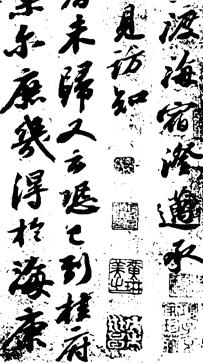 渡海宿澄邁承
見訪知
者未歸又云恐已到桂府
果尔庶幾得於海康